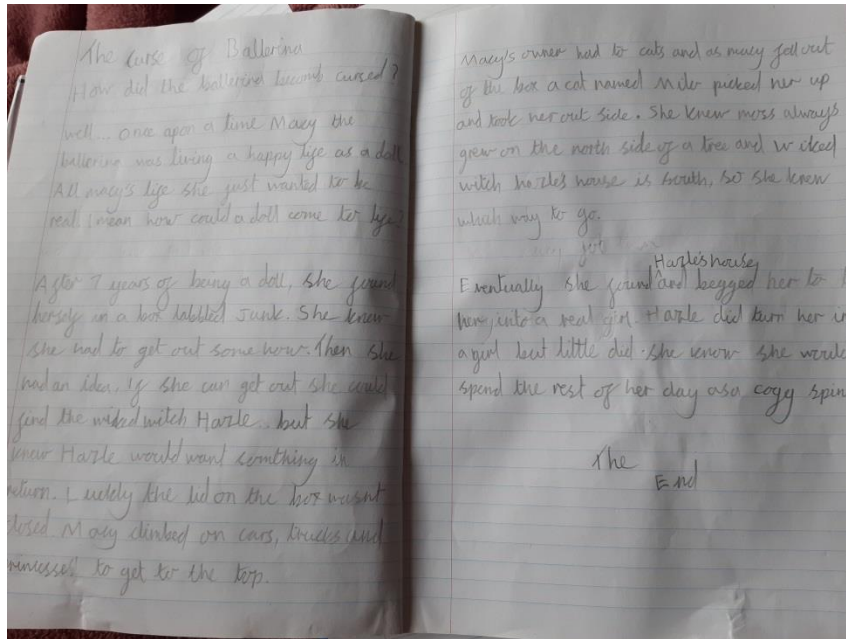 The Curse of Ballerina
How did the ballerina becomb cursed?
well... once apon a time Macy the
ballerina was living a happy life as a doll
All macy's life she just wanted to be
real I mean how could a doll come to life?
After 7 years of being a doll, she found
herself in a box labbled Junk. She knew
she had to get out some how. Then she
had an idea, If she can get out she could
find the wiked witch Hazle but she
knew Hazle would want somthing in
return. Luckly the lid on the box wasnt
closed Macy climbed on cars, trucks and
princesses to get to the top.
Macy's owner had to cats and as macy fell out
of the box a cat named Milo picked her up
and took her out side. She knew moss always
grew on the north side of a tree and wicked
witch hazles house is south, so she knew
which way to go.
Hazle's house
Eventually she found and begged her to
her into a real girl. Hazle did turn her in
a girl but little did she know she would
spend the rest of her day as a cogg spin
The
End